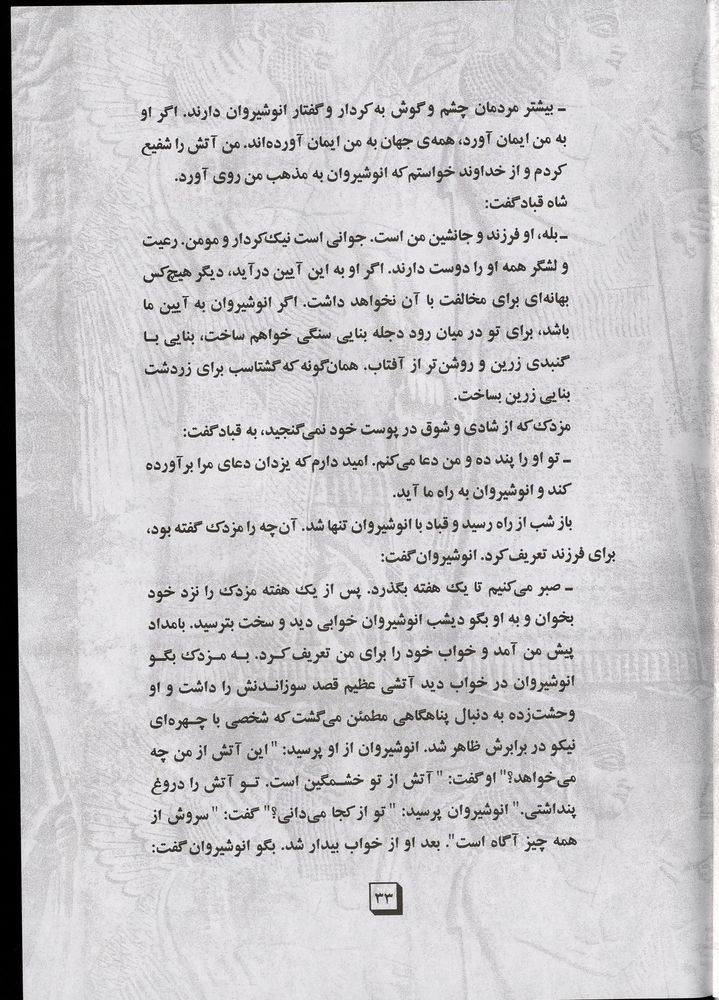 ـ بیشتر مردمان چشم و گوش به کردار و گفتار انوشیروان دارند. اگر او
به من ایمان آورد، همه‌ی جهان به من ایمان آورده‌اند. من آتش را شفیع
کردم و از خداوند خواستم که انوشیروان به مذهب من روی آورد.
شاه قباد گفت:
ـ بله، او فرزند و جانشین من است. جوانی است نیک‌کردار و مومن. رعیت
و لشگر همه او را دوست دارند. اگر او به این آیین درآید، دیگر هیچ‌کس
بهانه‌ای برای مخالفت با آن نخواهد داشت. اگر انوشیروان به آیین ما
باشد، برای تو در میان رود دجله بنایی سنگی خواهم ساخت، بنایی بـا
گنبدی زرین و روشن‌تر از آفتاب. همان‌گونه که گشتاسب برای زردشت
بنایی زرین بساخت.
مزدک که از شادی و شوق در پوست خود نمی‌گنجید، به قباد گفت:
ـ تو او را پند ده و من دعا می‌کنم. امید دارم که یزدان دعای مرا برآورده
کند و انوشیروان به راه ما آید.
باز شب از راه رسید و قباد با انوشیروان تنها شد. آن‌چه را مزدک گفته بود،
برای فرزند تعریف کرد. انوشیروان گفت:
ـ صبر می‌کنیم تا یک هفته بگذرد. پس از یک هفته مزدک را نزد خود
بخوان و به او بگو دیشب انوشیروان خوابی دید و سخت بترسید. بامداد
پیش من آمد و خواب خود را برای من تعریف کـرد. بـه مـزدک بگـو
انوشیروان در خواب دید آتشی عظیم قصد سوزاندنش را داشت و او
وحشت‌زده به دنبال پناهگاهی مطمئن می‌گشت که شخصی با چـهره‌ای
نیکو در برابرش ظاهر شد. انوشیروان از او پرسید: "این آتش از من چه
می‌خواهد؟" او گفت: "آتش از تو خشـمگین است. تـو آتش را دروغ
پنداشتی." انوشیروان پرسید: "تو از کجا می‌دانی؟" گفت: "سروش از
همه چیز آگاه است". بعد او از خواب بیدار شد. بگو انوشیروان گفت:
۳۳